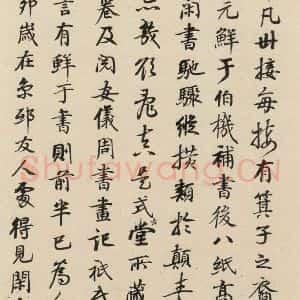 凡卅接每接有箕子之裔
元鮮于伯機補書後八紙高
閑書馳驟縱橫類於顛
真式堂所藏
卷及閱安儀周書畫記祇
言有鮮于書則前半已為
卯歲在京邸友人處得見閑
Shufawang.CN